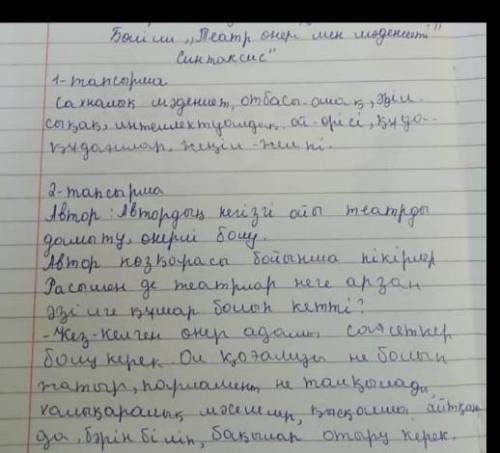 Бөлім „Театр өнер мен мәдениеті"
Синтаксис"
1-тапсырма
Сахналық мәдениет, отбасы-ошақ, әзіл-
сықақ, интеллектуалдық ой-өрісі, құда-
құдандар, жеңіл-желпі.
2-тапсырма
Автор: Автордың негізгі ойы театрды
дамыту, өнерлі болу.
Автор көзқарасы бойынша пікірлер
Расымен де театрлар неге арзан
әзілге құмар болып кетті?
- Кез-келген өнер адамы саясеткер
болу керек. Ол қоғамда не болып
жатыр, парламент не талқылады,
халықаралық мәселелер, қысқаша айтқан
да, бәрін біліп, бақылап отыру керек.